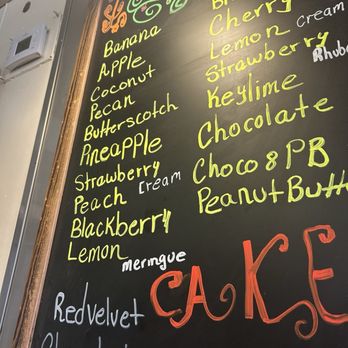 Banana
Apple
Coconut
Pecan
Butterscotch
Pineapple
Strawberry
Peach cream
Blackberry
Lemon meringue
Cherry
Lemon cream
Strawberry
Keylime
Chocolate
Choco & PB
Peanut
CAKE
Redvelvet